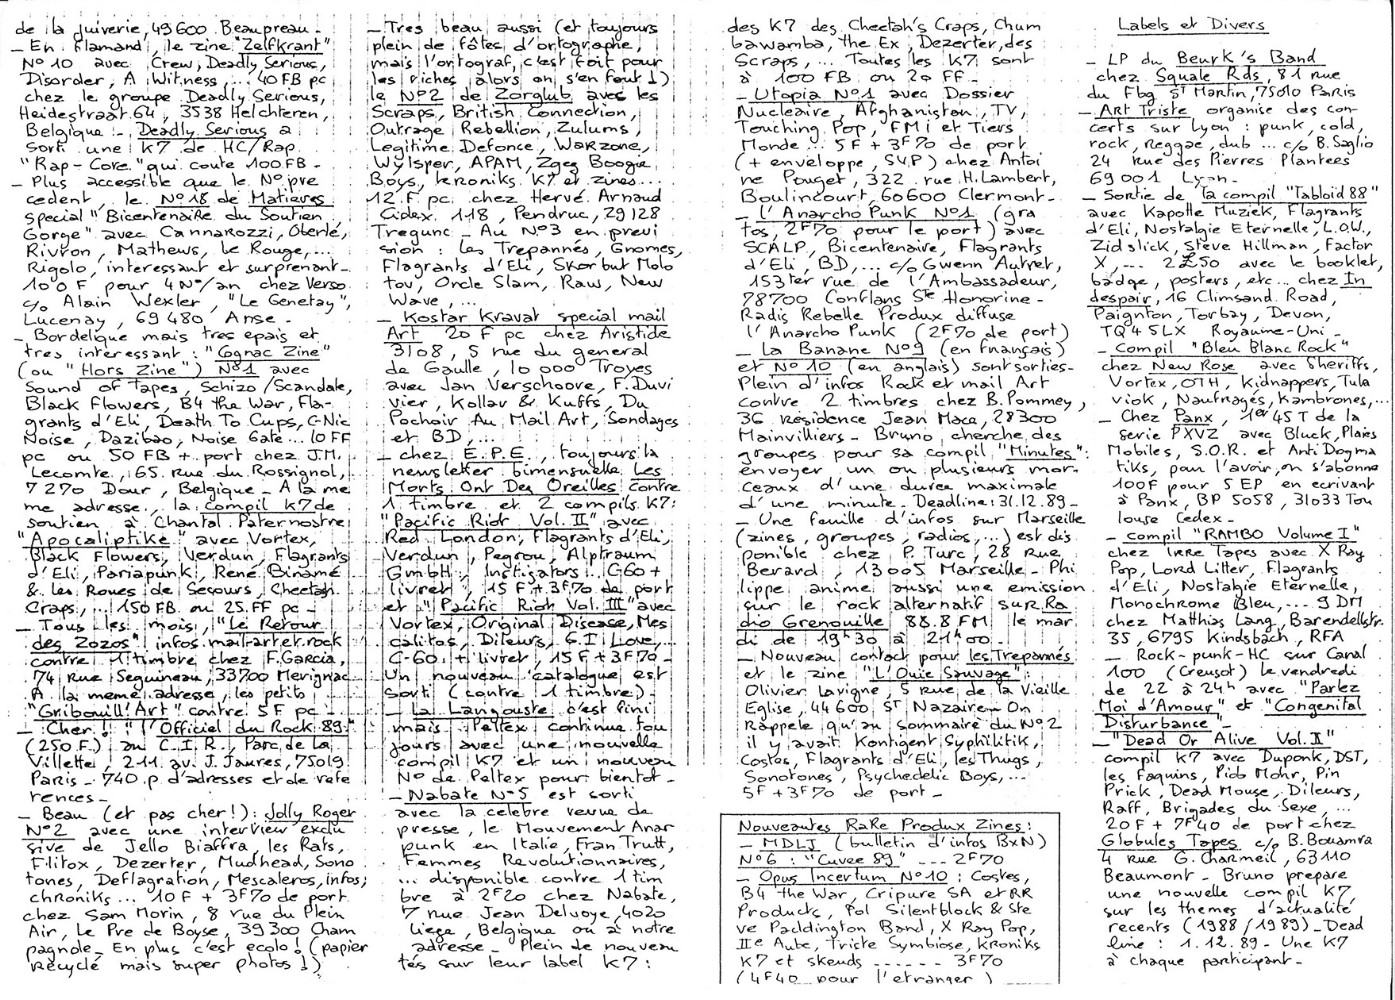 de la Juiverie, 49600 Beaupreau.
_ En flamand, le zine "Zelfkrant"
N°10 avec Crew, Deadly Serious,
Disorder, A Witness,... 40 FB pc
chez le groupe Deadly Serious,
Heidestraat 64, 3538 Helchteren,
Belgique - Deadly Serious a
sorti une K7 de HC/Rap
"Rap-Core" qui coute 100 FB -
_ Plus accessible que le N° pre
cedent, le N°18 de Matieres
special "Bicentenaire du Soutien
Gorge" avec Cannarozzi, Oberlé,
Rivron, Mathews, Le Rouge,...
Rigolo, interessant et surprenant_
100 F pour 4 N°/an chez Verso
c/o Alain Wexler, "Le Genetay",
Lucenay, 69480 Anse -
_ Bordelique mais tres epais et
tres interessant : "Cognac Zine"
(ou "Hors Zine") N°1 avec
Sound of Tapes, Schizo/Scandale,
Black Flowers, B4 the War, Fla-
grants d'Eli, Death To Cups, C-Nic
Noise, Dazibao, Noise Gate... 10 FF
pc ou 50 FB + port chez J.M.
Lecomte, 65 rue du Rossignol,
7270 Dour, Belgique - A la me
me adresse, la compil K7 de
soutien à Chantal Paternostre
"Apocaliptike" avec Vortex,
Black Flowers, Verdun, Flagrants
d'Eli, Pariapunk, René Binamé
& les Roues de Secours, Cheetah
Craps,... 150 FB ou 25 FF pc -
_ Tous les mois, "Le Retour
des Zozos" infos mail art et rock
contre 1 timbre chez F. Garcia,
74 rue Seguineau, 33700 Merignac
A la meme adresse, les petits
"Gribouill'Art" contre 5F pc -
_ Cher ! : "l'Officiel du Rock 89"
(250 F.) au C.I.R., Parc de La
Villette, 211 av. J. Jaures, 75019
Paris - 740 p. d'adresses et de refe
rences -
_ Beau (et pas cher !) : Jolly Roger
N°2 avec une interview exclu
sive de Jello Biaffra, les Rats,
Filitox, Dezerter, Mudhead, Sono
tones, Deflagration, Mescaleros, infos,
chroniks... 10 F + 3F70 de port
chez Sam Morin, 8 rue du Plein
Air, Le Pre de Boyse, 39300 Cham
pagnole_ En plus c'est ecolo ! (papier
recyclé mais super photos !)
_ Tres beau aussi (et toujours
plein de fâtes d'ortographe,
mais l'ortograf, c'est foit pour
les riches alors on s'en fout !)
le N°2 de Zorglub avec les
Scraps, British Connection,
Outrage Rebellion, Zulums,
Legitime Defonce, Warzone,
Wylsper, APAM, Zgeg Boogie
Boys, kroniks K7 et zines....
12 F pc chez Hervé Arnaud
Cidex 118, Pendruc, 29128
Tregunc - Au N°3 en previ
sion : les Trepannés, Gnomes,
Flagrants d'Eli, Skorbut Molo
tov, Oncle Slam, Raw, New
Wave,...
_ Kostar Kravat special mail
Art 20 F pc chez Aristide
3108, 5 rue du general
de Gaulle, 10 000 Troyes
avec Jan Verschoore, F. Duvi
vier, Kollar & Kuffs, Du
Pochoir Au Mail Art, Sondages
et BD,...
_ chez E.P.E, toujours la
newsletter bimensuelle Les
Morts Ont Des Oreilles contre
1 timbre et 2 compils K7 :
"Pacific Riot Vol. II" avec
Red London, Flagrants d'Eli,
Verdun, Pegrou, Alptraum
GmbH, Instigators.. C60 +
livret, 15 F + 3F70 de port
et "Pacific Riot Vol. III" avec
Vortex, Original Disease, Mes
calitos, Dileurs, G.I Love,...
C-60 + livret, 15F + 3F70 -
Un nouveau catalogue est
sorti (contre 1 timbre) -
_ La Langouste c'est fini
mais Peltex continue tou
jours avec une nouvelle
compil K7 et un nouveau
N° de Peltex pour bientot -
_ Nabate N°5 est sorti
avec la celebre revue de
presse, le Mouvement Anar
punk en Italie, Fran Trutt,
Femmes Revolutionnaires,
... disponible contre 1 tim
bre à 2F20 chez Nabate,
7 rue Jean Delvoye, 4020
Liege, Belgique ou à notre
adresse - Plein de nouveau
tés sur leur label K7 :
des K7 des Cheetah's Craps, Chum
bawamba, the Ex, Dezerter, des
Scraps,... Toutes les K7 sont
à 100 FB ou 20 FF -
_ Utopia N°1 avec Dossier
Nucleaire, Afghanistan, TV,
Touching Pop, FMI et Tiers
Monde.. 5F + 3F70 de port
(+ enveloppe, SVP) chez Antoi
ne Pouget, 322 rue H. Lambert,
Boulincourt, 60600 Clermont-
_ l'Anarcho Punk N°1 (gra
tos, 2F70 pour le port) avec
SCALP, Bicentenaire, Flagrants
d'Eli, BD,... c/o Gwenn Autret,
153 ter rue de l'Ambassadeur,
78700 Conflans Ste Honorine -
Radis Rebelle Produx diffuse
l'Anarcho Punk (2F70 de port)
_ La Banane N°9 (en français)
et N°10 (en anglais) sont sorties-
Plein d'infos Rock et mail Art
contre 2 timbres chez B. Pommey,
36 residence Jean Mace, 28300
Mainvilliers - Bruno cherche des
groupes pour sa compil "Minutes" :
envoyer un ou plusieurs mor-
ceaux d'une duree maximale
d'une minute - Deadline : 31.12.89 -
_ Une feuille d'infos sur Marseille
(zines, groupes, radios,...) est dis
ponible chez P. Turc, 28 rue
Berard, 13005 Marseille - Phi
lippe anime aussi une emission
sur le rock alternatif sur Ra
dio Grenouille 88.8 FM le mar
di de 19h30 à 21h00 -
_ Nouveau contact pour les Trepannés
et le zine "L'Ouie Sauvage" :
Olivier Lavigne, 5 rue de la Vieille
Eglise, 44600 St Nazaire - On
Rappele qu'au sommaire du N°2
il y avait Kontigent Syphilitik,
Costes, Flagrants d'Eli, les Thugs,
Sonotones, Psychedelic Boys,...
5F + 3F70 de port -
Nouveautes RaRe Produx Zines :
_ MDLJ (bulletin d'infos BxN)
N°6 : "Cuvee 89" --- 2F70
_ Opus Incertum N°10 : Costes,
B4 the War, Cripure SA et RR
Products, Pol Silentblock & Ste
ve Paddington Band, X Ray Pop,
IIe Aube, Triste Symbiose, kroniks
K7 et skeuds ------ 3F70
(4F40 pour l'etranger)
Labels et Divers
_ LP du Beurk's Band
chez Squale Rds, 81 rue
du Fbg St Martin, 75010 Paris
_ Art Triste organise des con-
certs sur Lyon : punk, cold,
rock, reggae, dub ... c/o B. Saglio
24 rue des Pierres Plantees
69001 Lyon -
_ Sortie de la compil "Tabloid 88"
avec Kapotte Muziek, Flagrants
d'Eli, Nostalgie Eternelle, L.O.W.,
Zidslick, Steve Hillman, Factor
X,... 2£50 avec le booklet,
badge, posters, etc... chez In
despair, 16 Climsand Road,
Paignton, Torbay, Devon,
TQ4 5LX Royaume-Uni -
_ Compil "Bleu Blanc Rock"
chez New Rose avec Sheriffs,
Vortex, OTH, Kidnappers, Tula
viok, Naufragés, Kambrones,...
_ Chez Panx, 1er 45T de la
serie PXVZ avec Bluck, Plaies
Mobiles, S.O.R. et Anti Dogma
tiks, pour l'avoir, on s'abonne
100F pour 5 EP en ecrivant
à Panx, BP 5058, 31033 Tou
louse Cedex -
_ compil "RAMBO Volume I"
chez IRRE Tapes avec X Ray
Pop, Lord Litter, Flagrants
d'Eli, Nostalgie Eternelle,
Monochrome Bleu,... 9 DM
chez Matthias Lang, Barendellstr.
35, 6795 Kindsbach, RFA
_ Rock-punk-HC sur Canal
100 (Creusot) le vendredi
de 22 à 24h avec "Parlez
Moi d'Amour" et "Congenital
Disturbance" -
_ "Dead Or Alive Vol. II"
compil K7 avec Duponk, DST,
les Faquins, Piob Mohr, Pin
Prick, Dead Mouse, Dileurs,
Raff, Brigades du Sexe,...
20 F + 7F40 de port chez
Globules Tapes c/o B. Bouamra
4 rue G. Charmeil, 63110
Beaumont - Bruno prepare
une nouvelle compil K7
sur les themes d'actualité
recents (1988/1989) - Dead
line : 1.12.89 - Une K7
à chaque participant -